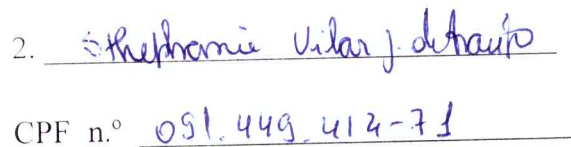 2. Sthephanie Vilar J. de Araujo
CPF n.º 091.449.414-71